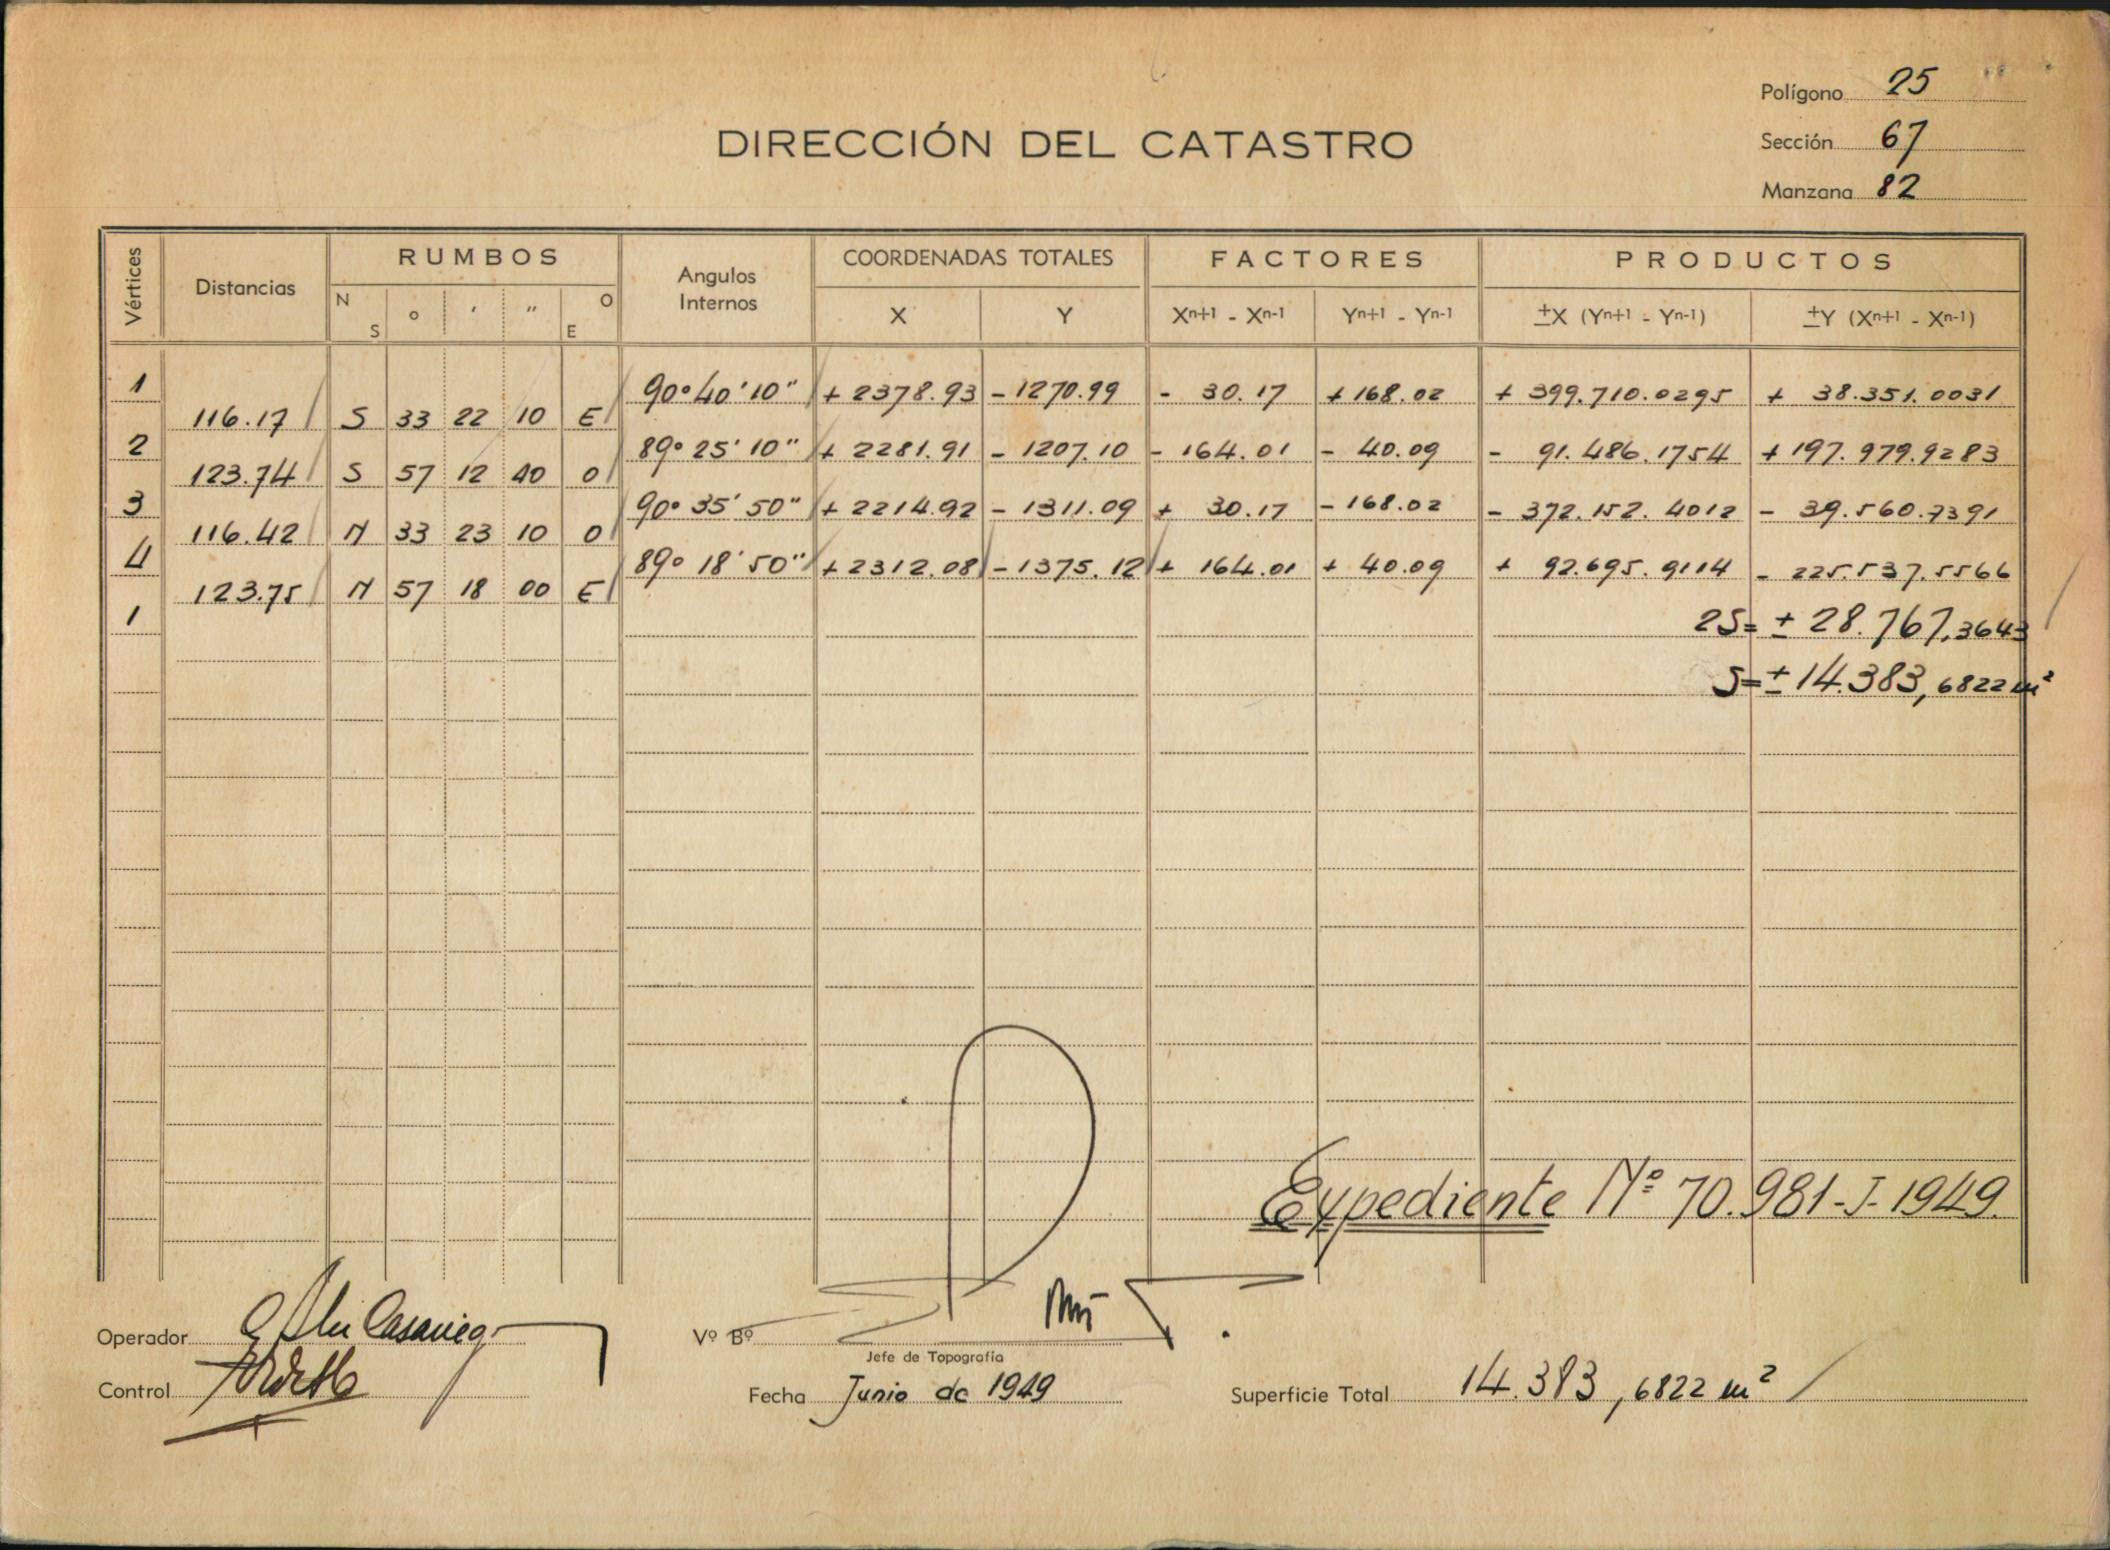 Polígono 25
DIRECCIÓN DEL CATASTRO
Sección 67
Manzana 82
Vértices Distancias RUMBOS Angulos Internos COORDENADAS TOTALES FACTORES PRODUCTOS
N S ° ' " O E X Y Xn+1 - Xn-1 Yn+1 - Yn-1 ±X (Yn+1 - Yn-1) ±Y (Xn+1 - Xn-1)
1 90° 40' 10" + 2378.93 - 1270.99 - 30.17 + 168.02 + 399.710.0295 + 38.351.0031
116.17 S 33 22 10 E
2 89° 25' 10" + 2281.91 - 1207.10 - 164.01 - 40.09 - 91.486.1754 + 197.979.9283
123.74 S 57 12 40 O
3 90° 35' 50" + 2214.92 - 1311.09 + 30.17 - 168.02 - 372.152.4012 - 39.560.7391
116.42 N 33 23 10 O
4 89° 18' 50" + 2312.08 - 1375.12 + 164.01 + 40.09 + 92.695.9114 - 225.537.5566
123.75 N 57 18 00 E
1 2S= ± 28.767,3643
S= ± 14.383,6822 m²
Expediente Nº 70.981-J-1949.
Operador
Vº Bº
Jefe de Topografía
Control
Fecha Junio de 1949
Superficie Total 14.383,6822 m²